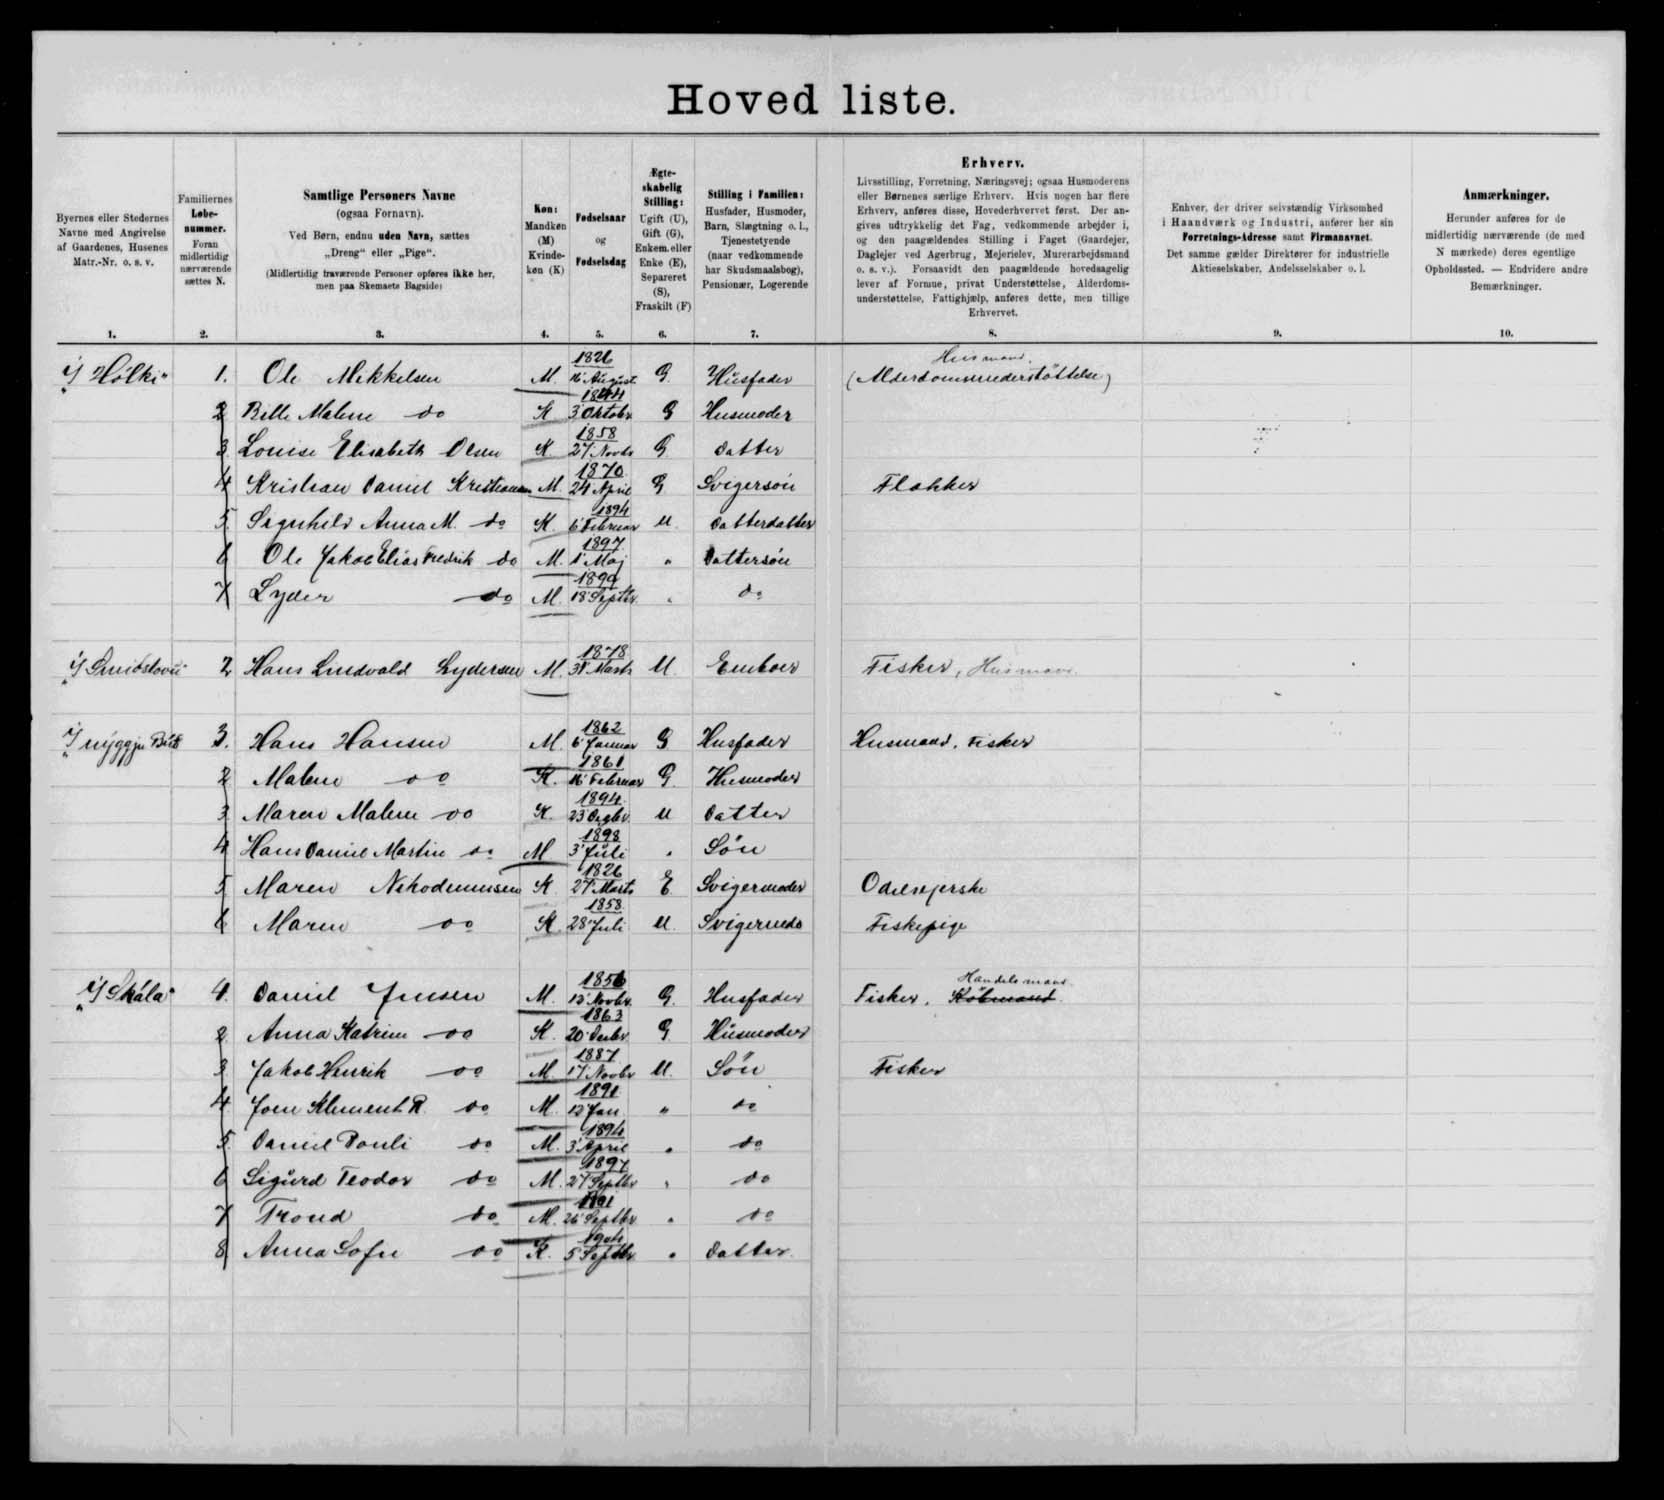 Hoved liste.
Byernes eller Stedernes
Navne med Angivelse
af Gaardenes, Husenes
Matr.-Nr. o. s. v.
1.
Familiernes
Løbe-
nummer.
Foran
midlertidig
nærværende
sættes N.
2.
Samtlige Personers Navne
(ogsaa Fornavn).
Ved Børn, endnu uden Navn, sættes
„Dreng“ eller „Pige“.
(Midlertidig fraværende Personer opføres ikke her,
men paa Skemaets Bagside)
3.
Køn:
Mandkøn
(M)
Kvinde-
køn (K)
4.
Fødselsaar
og
Fødselsdag
5.
Ægte-
skabelig
Stilling:
Ugift (U),
Gift (G),
Enkem. eller
Enke (E),
Separeret
(S),
Fraskilt (F)
6.
Stilling i Familien:
Husfader, Husmoder,
Barn, Slægtning o. l.,
Tjenestetyende
(naar vedkommende
har Skudsmaalsbog),
Pensionær, Logerende
7.
Erhverv.
Livsstilling, Forretning, Næringsvej; ogsaa Husmoderens
eller Børnenes særlige Erhverv. Hvis nogen har flere
Erhverv, anføres disse, Hovederhvervet først. Der an-
gives udtrykkelig det Fag, vedkommende arbejder i,
og den paagældendes Stilling i Faget (Gaardejer,
Daglejer ved Agerbrug, Mejerielev, Murerarbejdsmand
o. s. v.). Forsaavidt den paagældende hovedsagelig
lever af Formue, privat Understøttelse, Alderdoms-
understøttelse, Fattighjælp, anføres dette, men tillige
Erhvervet.
8.
Enhver, der driver selvstændig Virksomhed
i Haandværk og Industri, anfører her sin
Forretnings-Adresse samt Firmanavnet.
Det samme gælder Direktører for industrielle
Aktieselskaber, Andelsselskaber o. l.
9.
Anmærkninger.
Herunder anføres for de
midlertidig nærværende (de med
N mærkede) deres egentlige
Opholdssted. — Endvidere andre
Bemærkninger.
10.
Í Hólki 1. Ole Mikkelsen M. 1826 16' August G. Husfader Husmand. (Alderdomsunderstøttelse)
2 Bille Malene do K 1844 3' Oktobr G Husmoder
3 Louise Elisabeth Olsen K 1858 27' Novbr G. Datter
4 Kristian Daniel Kristiansen M. 1870 24 April G Svigersön Flakker
5 Signhild Anna M. do K. 1894 6' Februar U. Datterdatter
6 Ole Jakob Elias Fredrik do M. 1897 1' Maj " Dattersön
7 Lyder do M. 1899 18' Septbr. " do
2 Hans Lindvald Lydersen M. 1878 31' Marts U. Enboer Fisker, Husmand.
3. Hans Hansen M. 1862 6' Januar G Husfader Husmand, Fisker
2 Malene do K. 1861 16' Februar G. Husmoder
3 Maren Malene do K. 1894 23' U Datter
4 Hans Daniel Martin do M 1898 3' Juli " Sön
5 Maren Nikodemussen K. 1826 27' Marts E Svigermoder Odelsejerske
6 Maren do K. 1858 28' Juli U. Svigerinde Fiskepige
Í Skála 4. Daniel Jensen M. 1856 12' Novbr. G. Husfader Fisker, Købmand. Handelsmand
2 Anna Katrine do K. 1863 20' Decbr G. Husmoder
3 Jakob Henrik do M. 1887 17' Novbr U. Sön Fisker
4 Joen Klement R. do M. 1891 12' Jan " do
5 Daniel Pouli do M. 1894 3' April " do
6 Sigurd Teodor do M. 1897 27' Septbr " do
7 Trond do M. 1901 26' Septbr " do
8 Anna Sofie do K. 1904 5' Septbr " Datter.